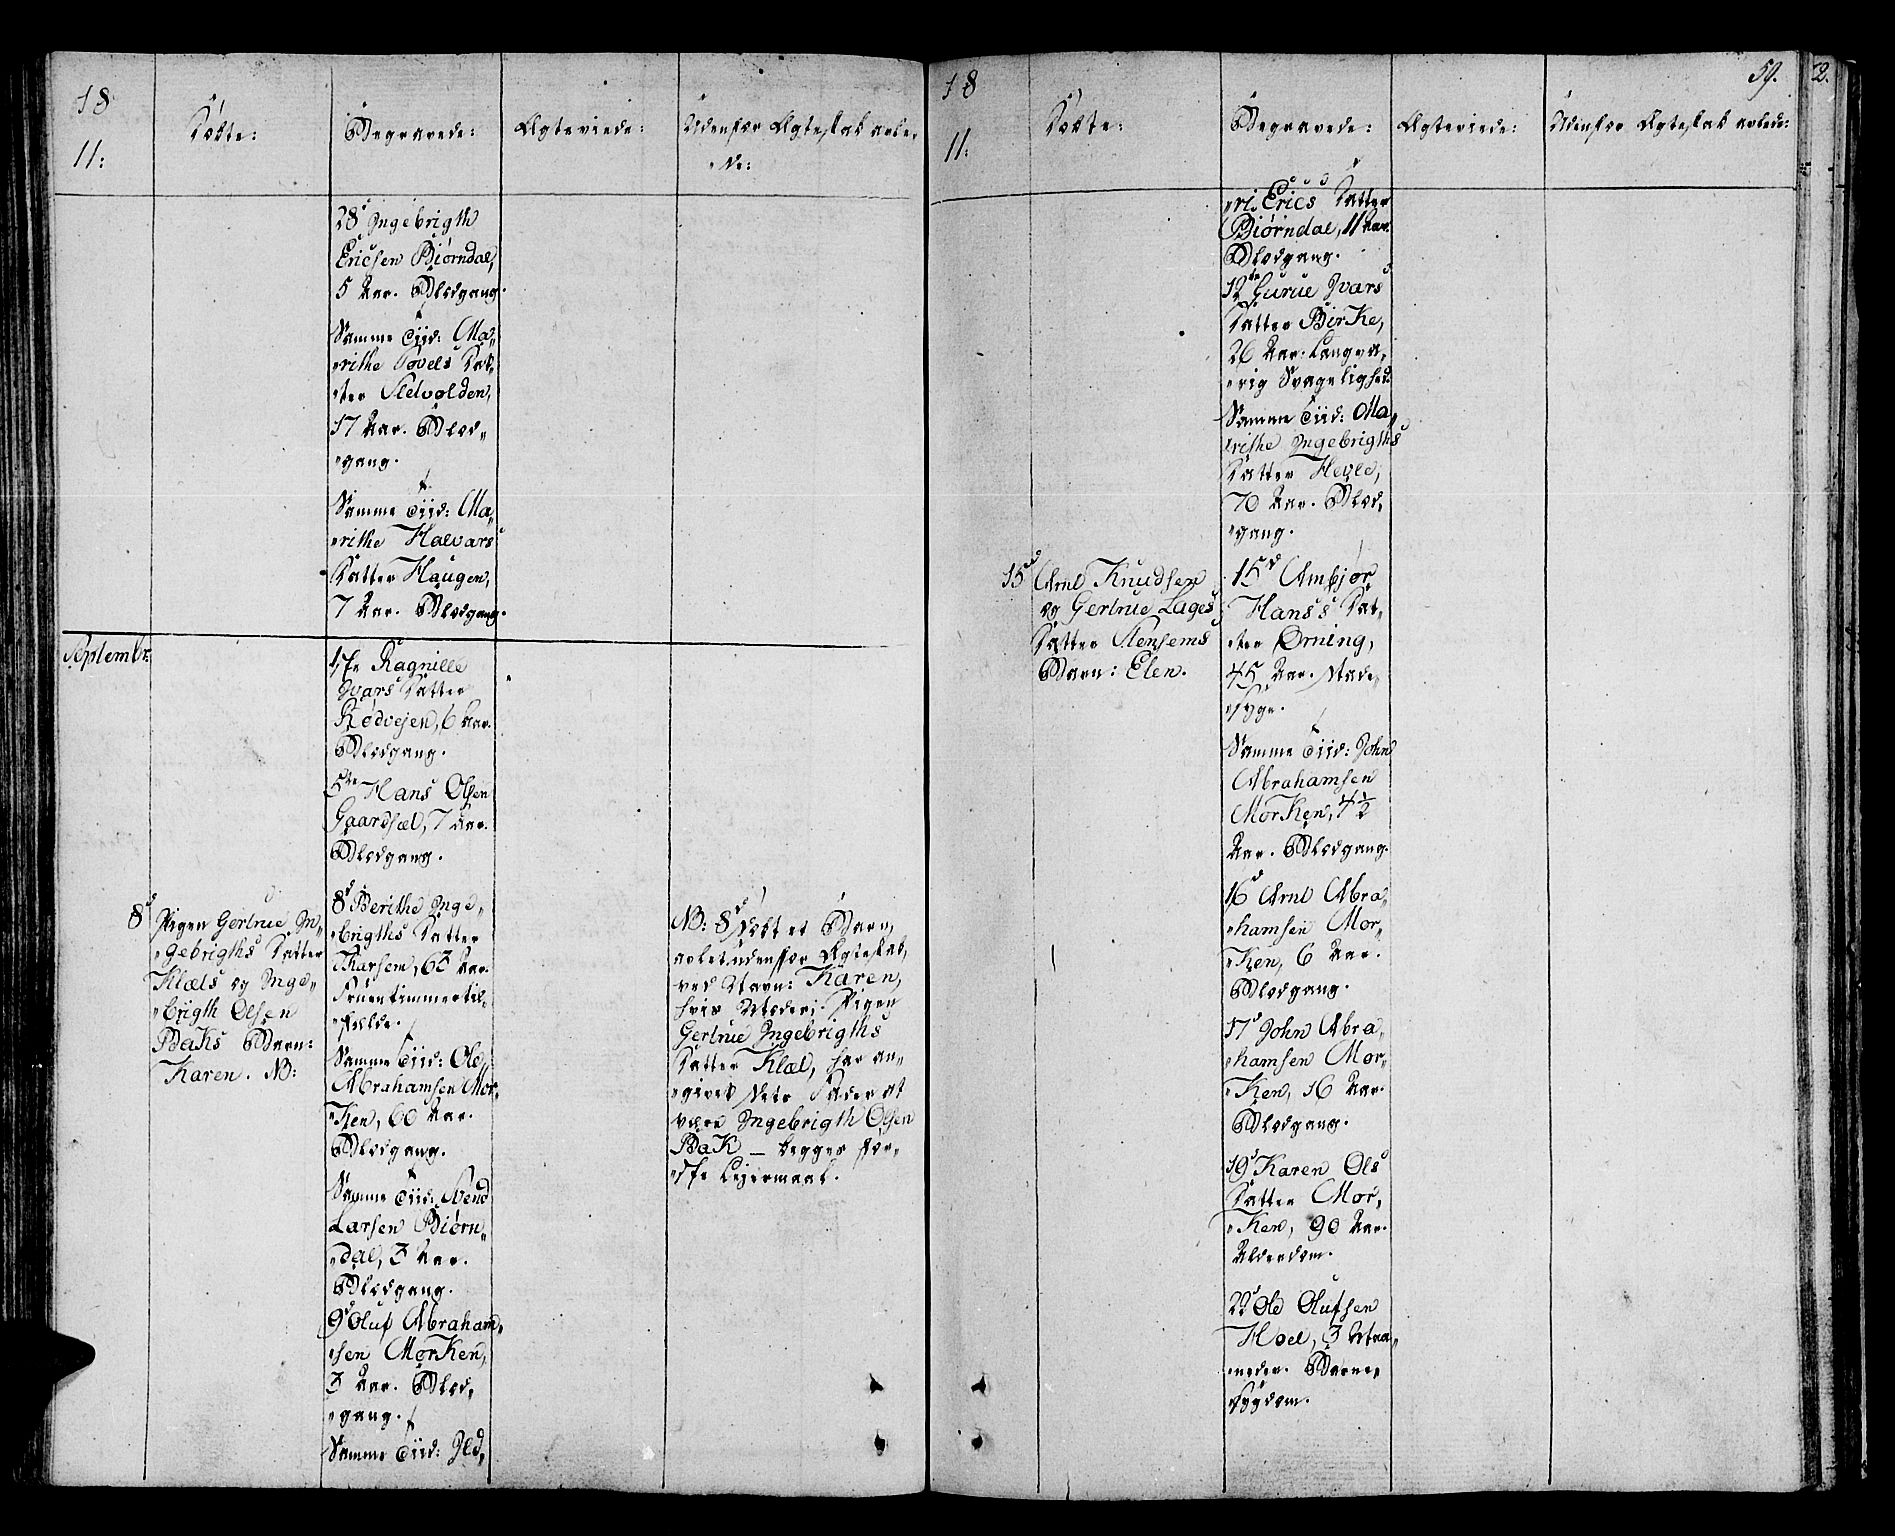 18
11:
Døbte:
Begravede:
Ægteviede:
Udenfor Ægteskab avle„
„de:
28d Ingebrigth
Ericsen Biørndal,
5 Aar. Blodgang.
Samme Tiid: Ma„
„rithe Povels Dat„
„ter Stelvolden,
17 Aar. Blod„
„gang.
Samme Tiid: Ma„
„rithe Halvars
Datter Haugen,
7 Aar. Blodgang.
Septembr:
1ste Ragnille
Ivars Datter
Rødvejen, 6 Aar.
Blodgang.
5te Hans Olsen
Gaardsæl, 7 Aar.
Blodgang.
8d Pigen Gertrue In„
„gebrigths Datter
Klæls og Inge„
„brigth Olsen
Baks Barn:
Karen. NB:
8d Berithe Inge„
„brigths Datter
Tharsem, 63 Aar.
Fruentimmertil„
„fælde.
Samme Tiid: Ole
Abrahamsen Mor„
„Ken, 60 Aar.
Blodgang.
Samme Tiid: Svend
Larsen Biørn„
„dal, 3 Aar.
Blodgang.
9d Oluf Abraham„
„sen MorKen,
3 Aar. Blod„
„gang.
Samme Tiid: Ild„
NB: 8d Født et Barn,
avlet udenfor Ægteskab,
ved Navn: Karen,
hvis Moder: Pigen
Gertrue Ingebrigths
Datter Klæl, har an„
„givet dets Fader at
være Ingebrigth Olsen
BaK — begges før„
„ste Leiermaal.
18
11:
59.
2.
Døbte:
Begravede:
Ægteviede:
Udenfor Ægteskab avlede:
„ri Erics Datter
Biørndal, 11 Aar.
Blodgang.
12te Gurue Ivars
Datter BirKe,
26 Aar. Langva„
„rig Svagelighed.
Samme Tiid: Ma„
„rithe Ingebrigths
Datter Hevle,
70 Aar. Blod„
„gang.
15d Arnt Knudsen
og Gertrue Lages
Datter Stensems
Barn: Elen.
15d Ambjør
Hans's Dat„
„ter Ørning,
45 Aar. Rade„
„syge.
Samme Tiid: John
Abrahamsen
MorKen, 4½
Aar. Blodgang.
16d Arnt Abra„
„hamsen Mor„
„Ken, 6 Aar.
Blodgang.
17d John Abra„
„hamsen Mor„
„Ken, 16 Aar.
Blodgang.
19d Karen Ols
Datter Mor„
„Ken, 90 Aar.
Alderdom.
22d Ole Olufsen
Hoel, 3 Maa„
„neder. Barne„
„sygdom.